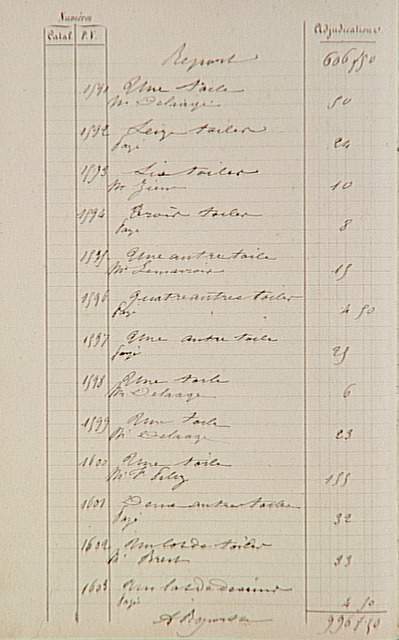 Numéros
Catal. P.V. Adjudications
Report 606,50
1591 Une toile
Mr Delaage 50
1592 Seize toiles
payé 24
1593 Six toiles
Mr 10
1594 Trois toiles
payé 8
1595 Une autre toile
Mr 15
1596 Quatre autres toiles
payé 4 50
1597 Une autre toile
payé 25
1598 Une toile
Mr Delaage 6
1599 Une toile
Mr Delaage 23
1600 Une toile
Mr 155
1601 Deux autres toiles
payé 32
1602 Un lot de toiles
Mr 33
1603 Un lot de dessins
payé 4 50
A Reporter 996,50